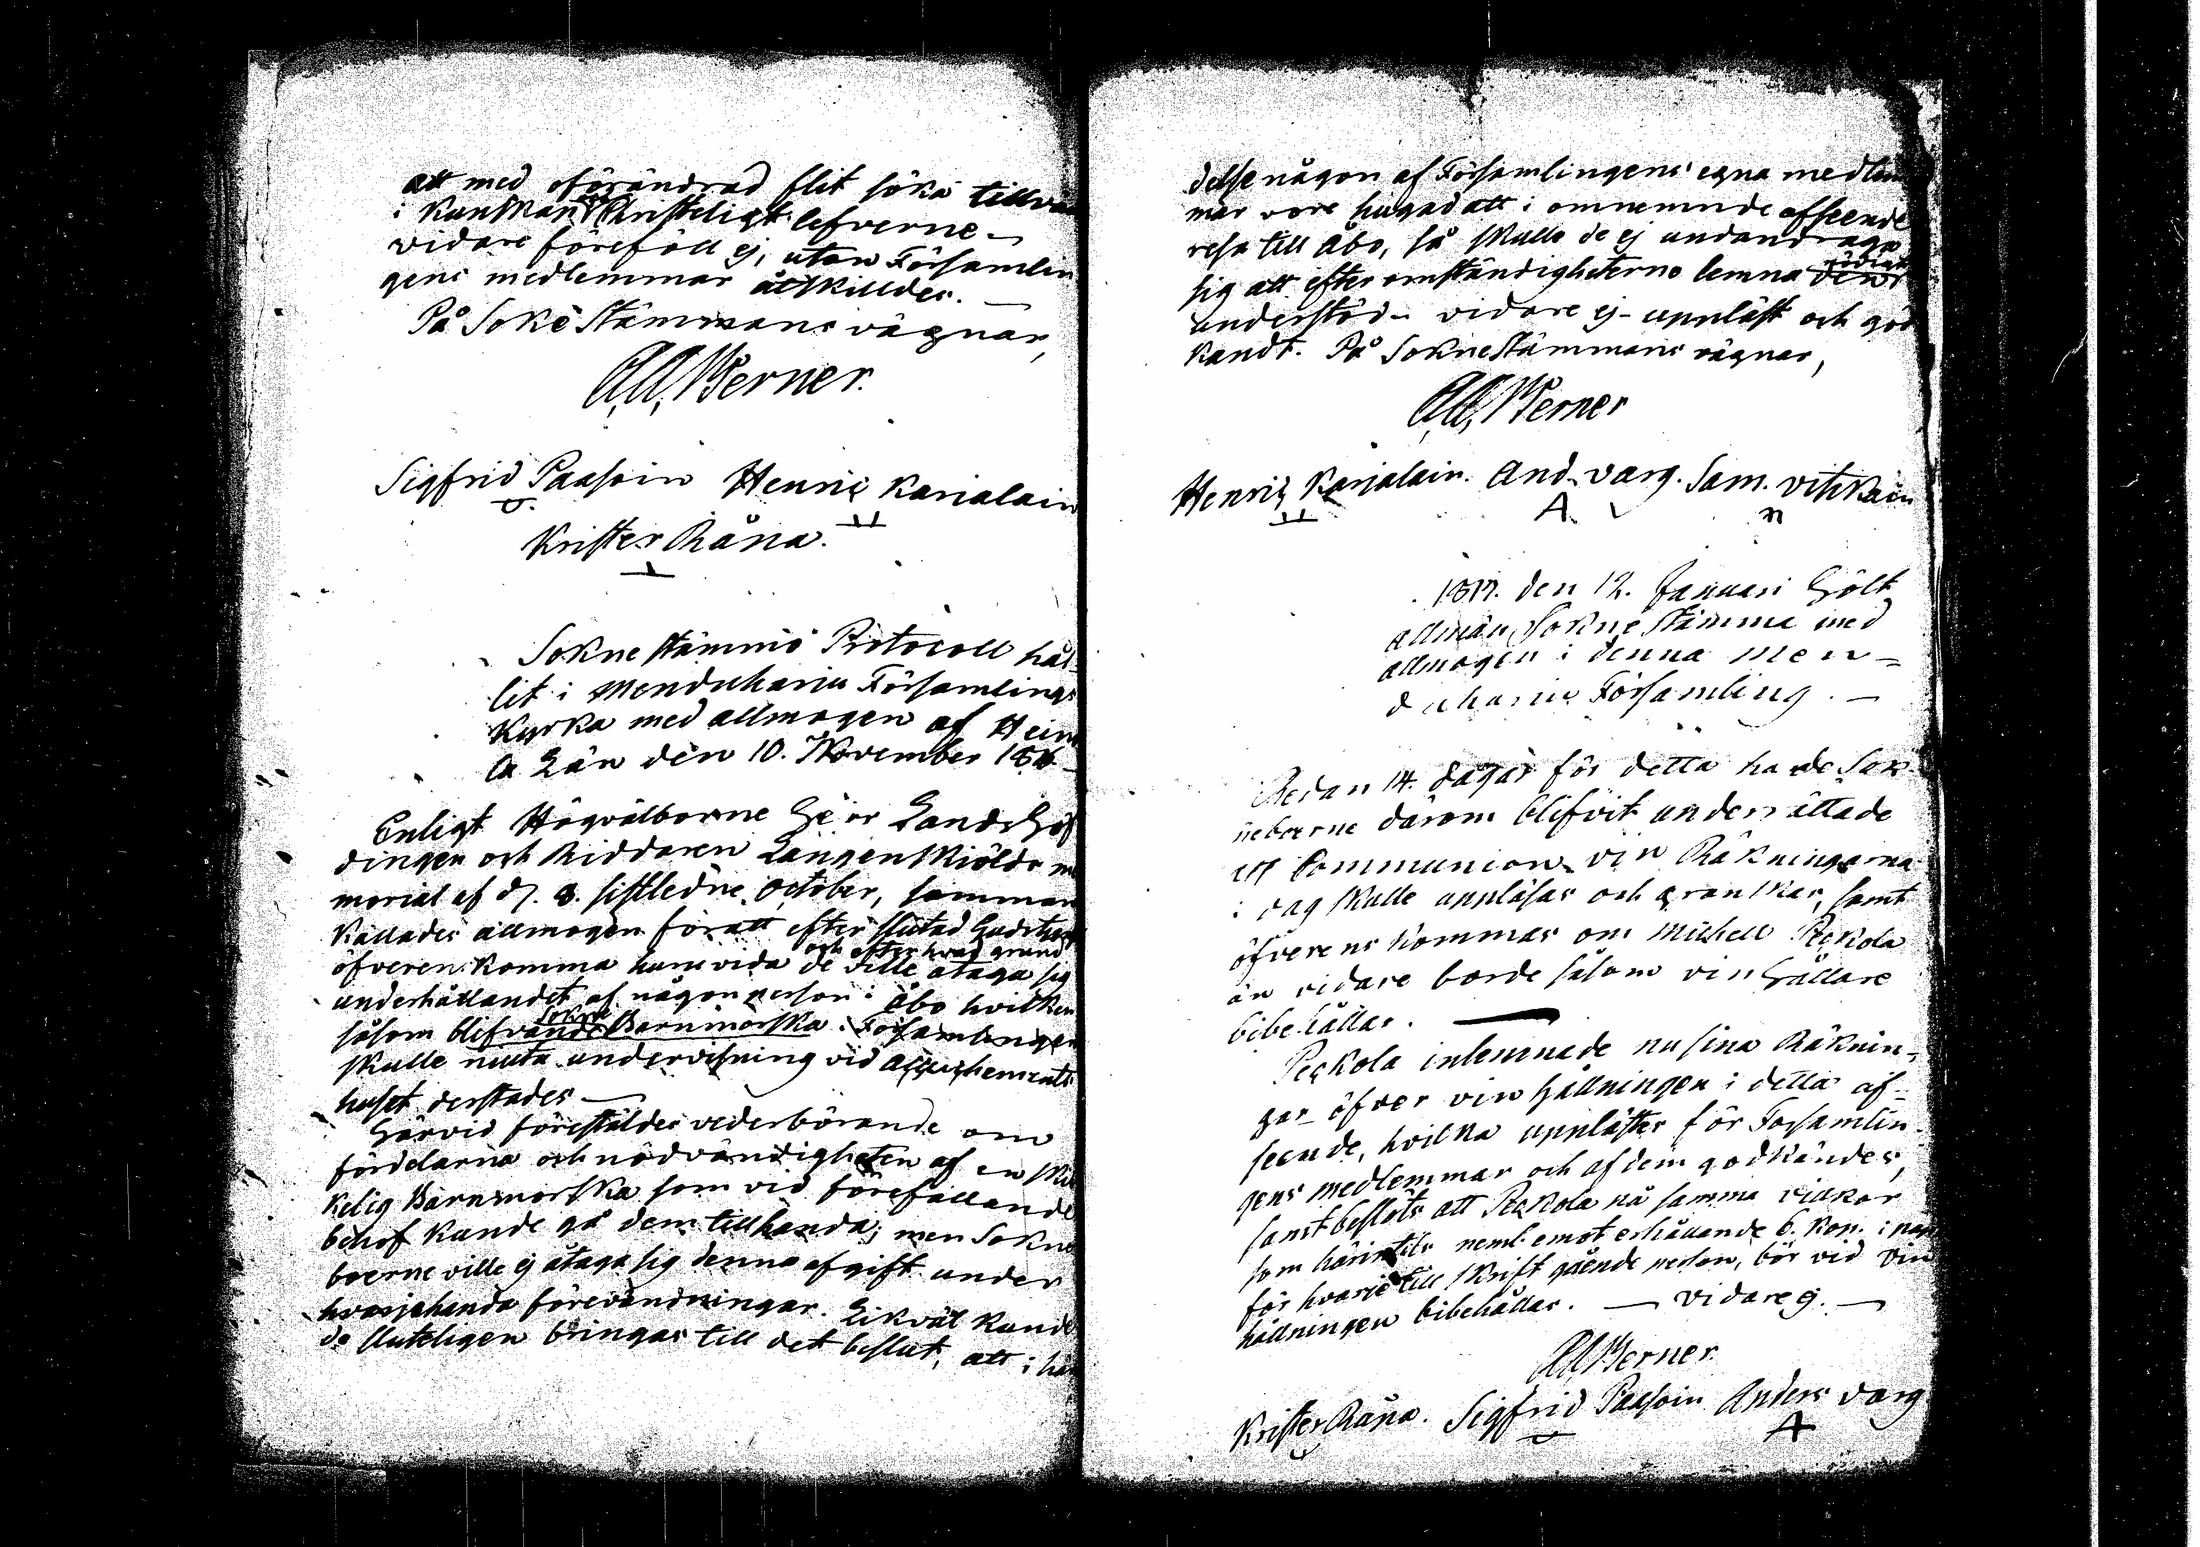 att med oförändrad flit söka tillväxa
i Kunskap i Christeligt lefverne –
vidare föreföll ej, utan Församlin
gens medlemmar åtskilldes. —
På SokneStämmans vägnar,
A. A. Werner.
Sigfrid Paasoin Henric Karialain
Krister Råna.
Sokne stämmo Protocoll hål
lit i Menduharju Församlings
Kyrka med allmogen af Hein
la Län den 10. November 1816
Enligt Högvälborne Herr Landshöf
dingen och Riddaren Langenskiölds me
morial af d. 8. sistledne October, samman
kallades allmogen för att efter slutad Gudstjenst
öfverenskomma huruvida de ville och efter hvad grund åtaga sig
underhållandet af någon person i Åbo hvilken
såsom blifvande Sokne Barnmorska i Församlingen
skulle niuta undervisning vid accouchements
huset derstädes —
Härvid föreställdes vederbörande om
fördelarna och nödvändigheten af en ski
kelig Barnmorska som vid förefallande
behof kunde gå dem tillhanda; men Sokne
boerne ville ej åtaga sig denna afgift under
hvarjehanda förevändningar. Likväl kunde
de sluteligen bringas till det beslut, att i hän
delse någon af Församlingens egna medlem
mar vore hugad att i omnemnde afseende
resa till Åbo, så skulle de ej undandraga
sig att efter omständigheterne lemna
understöd – vidare ej – uppläst och god
kändt. På Sokne Stämmans vägnar,
A. A. Werner
Henric Karjalain. And. Varg. Sam. Vitikain
A
1817. den 12. Januari Hölt
allmän Sokne Stämma med
allmogen i denna Men-
duharju Församling. —
Redan 14. dagar för detta hade Sok
neboerne därom blifvit underrättade
att Communion vin Räkningarna
i dag skulle uppläsas och granskas, samt
öfverenskommas om Michell Peckola
än vidare borde såsom vin hållare
bibehållas. —
Peckola inlemnade nu sina Räknin-
gar öfver vin hållningen i detta af-
seende, hvilka upplästes för Församlin-
gens medlemmar och af dem godkändes,
samt beslöts att Peckola på samma vilkor
som härintils neml. emot erhållande 6. Kop. i
för hvarje till skrift gående person, bör vid vin
hållningen bibehållas. — vidare ej. —
A. A. Werner.
Krister Råna. Sigfrid Paasoin Anders Varg
A